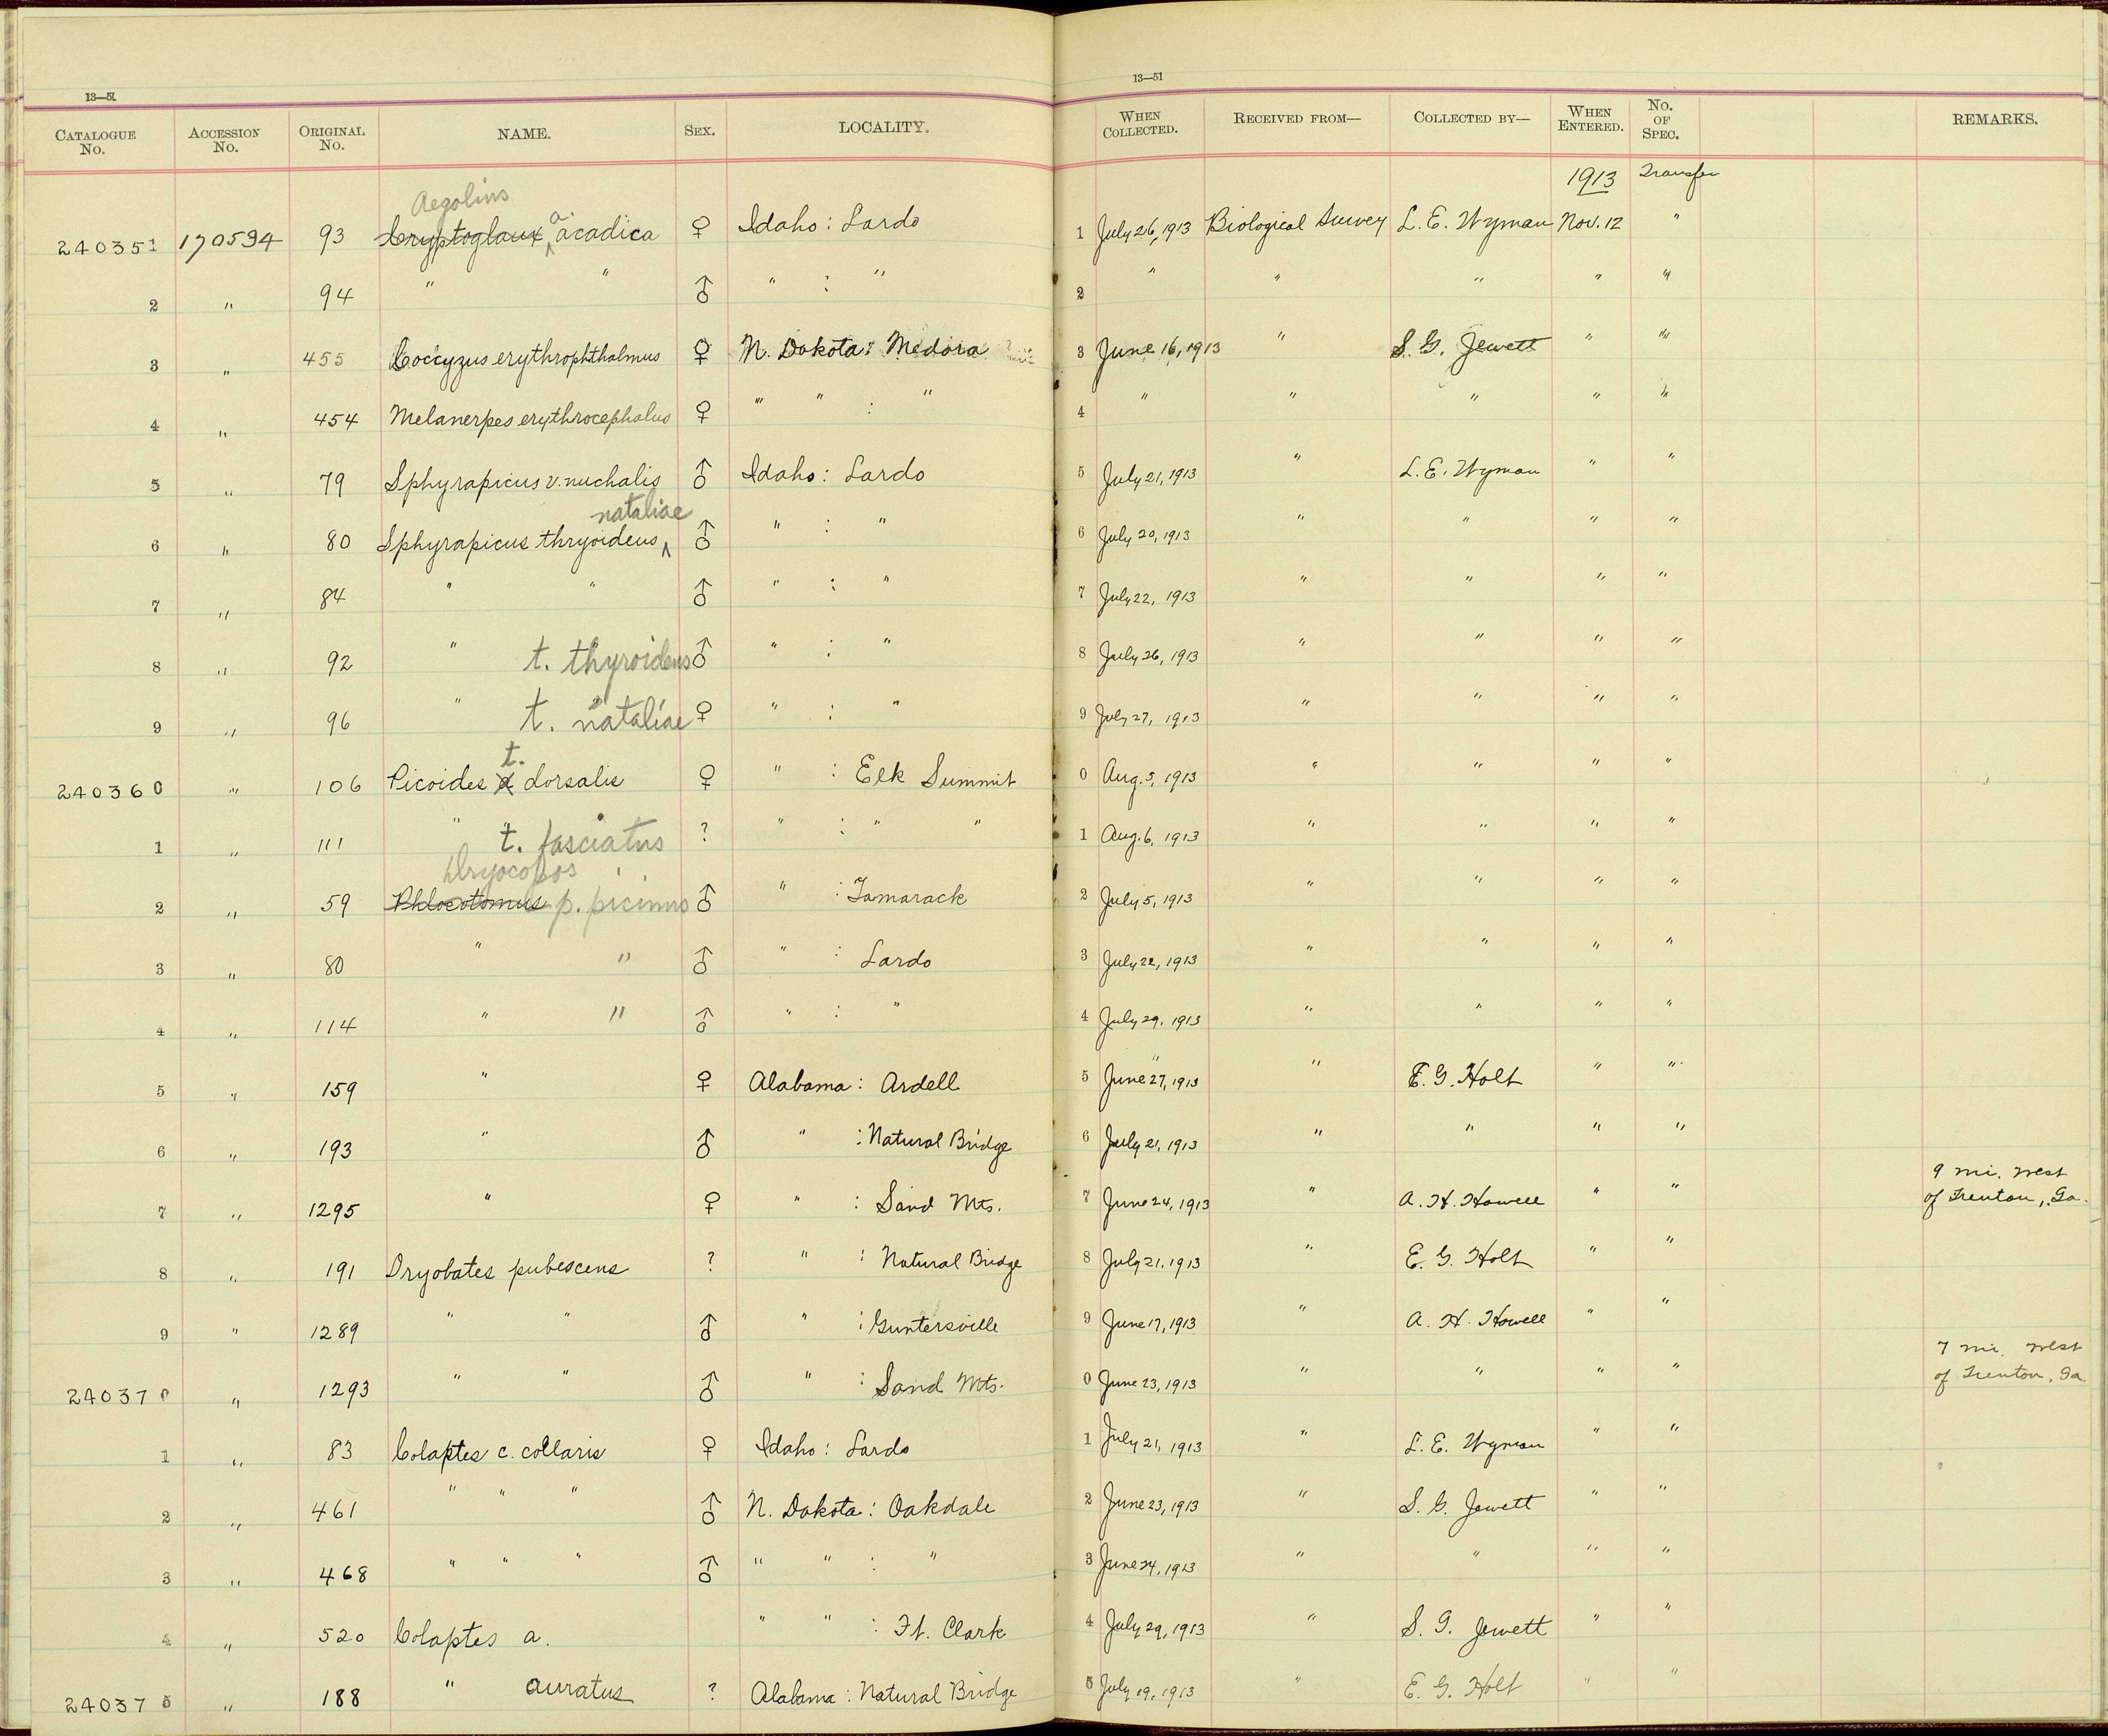 13—51
13—51
CATALOGUE No. ACCESSION No. ORIGINAL No. NAME. SEX. LOCALITY. WHEN COLLECTED. RECEIVED FROM— COLLECTED BY— WHEN ENTERED. No. OF SPEC. REMARKS.
1913 Transfer
Aegolius
a.
240351 170594 93 Cryptoglaux ^ acadica ♀ Idaho: Lardo 1 July 26, 1913 Biological Survey L. E. Wyman Nov. 12 "
2 " 94 " " ♂ " : " 2 " " " " "
3 " 455 Coccyzus erythrophthalmus ♀ N. Dakota: Medora 3 June 16, 1913 " S. G. Jewett " "
4 " 454 Melanerpes erythrocephalus ♀ " " : " 4 " " " " "
5 " 79 Sphyrapicus v. nuchalis ♂ Idaho: Lardo 5 July 21, 1913 " L. E. Wyman " "
nataliae
6 " 80 Sphyrapicus thryoideus ^ ♂ " : " 6 July 20, 1913 " " " "
7 " 84 " " ♂ " : " 7 July 22, 1913 " " " "
8 " 92 " t. thyroideus ♂ " : " 8 July 26, 1913 " " " "
9 " 96 " t. nataliae ♀ " : " 9 July 27, 1913 " " " "
t.
240360 " 106 Picoides a dorsalis ♀ " : Elk Summit 0 Aug. 5, 1913 " " " "
1 " 111 " t. fasciatus ? " : " " 1 Aug. 6, 1913 " " " "
Dryocopos
2 " 59 Phloeotomus p. picinus ♂ " : Tamarack 2 July 5, 1913 " " " "
3 " 80 " " ♂ " : Lardo 3 July 22, 1913 " " " "
4 " 114 " " ♂ " : " 4 July 29, 1913 " " " "
5 " 159 " ♀ Alabama: Ardell 5 June 27, 1913 " E. G. Holt " "
6 " 193 " ♂ " : Natural Bridge 6 July 21, 1913 " " " "
9 mi. west
7 " 1295 " ♀ " : Sand Mts. 7 June 24, 1913 " A. H. Howell " " of Trenton, Ga.
8 " 191 Dryobates pubescens ? " : Natural Bridge 8 July 21, 1913 " E. G. Holt " "
9 " 1289 " " ♂ " : Guntersville 9 June 17, 1913 " A. H. Howell " "
7 mi. west
240370 " 1293 " " ♂ " : Sand Mts. 0 June 23, 1913 " " " " of Trenton, Ga.
1 " 83 Colaptes c. collaris ♀ Idaho: Lardo 1 July 21, 1913 " L. E. Wyman " "
2 " 461 " " " ♂ N. Dakota: Oakdale 2 June 23, 1913 " S. G. Jewett " "
3 " 468 " " " ♂ " " : " 3 June 24, 1913 " " " "
4 " 520 Colaptes a. " " : Ft. Clark 4 July 29, 1913 " S. G. Jewett " "
240375 " 188 " auratus ? Alabama: Natural Bridge 5 July 19, 1913 " E. G. Holt " "